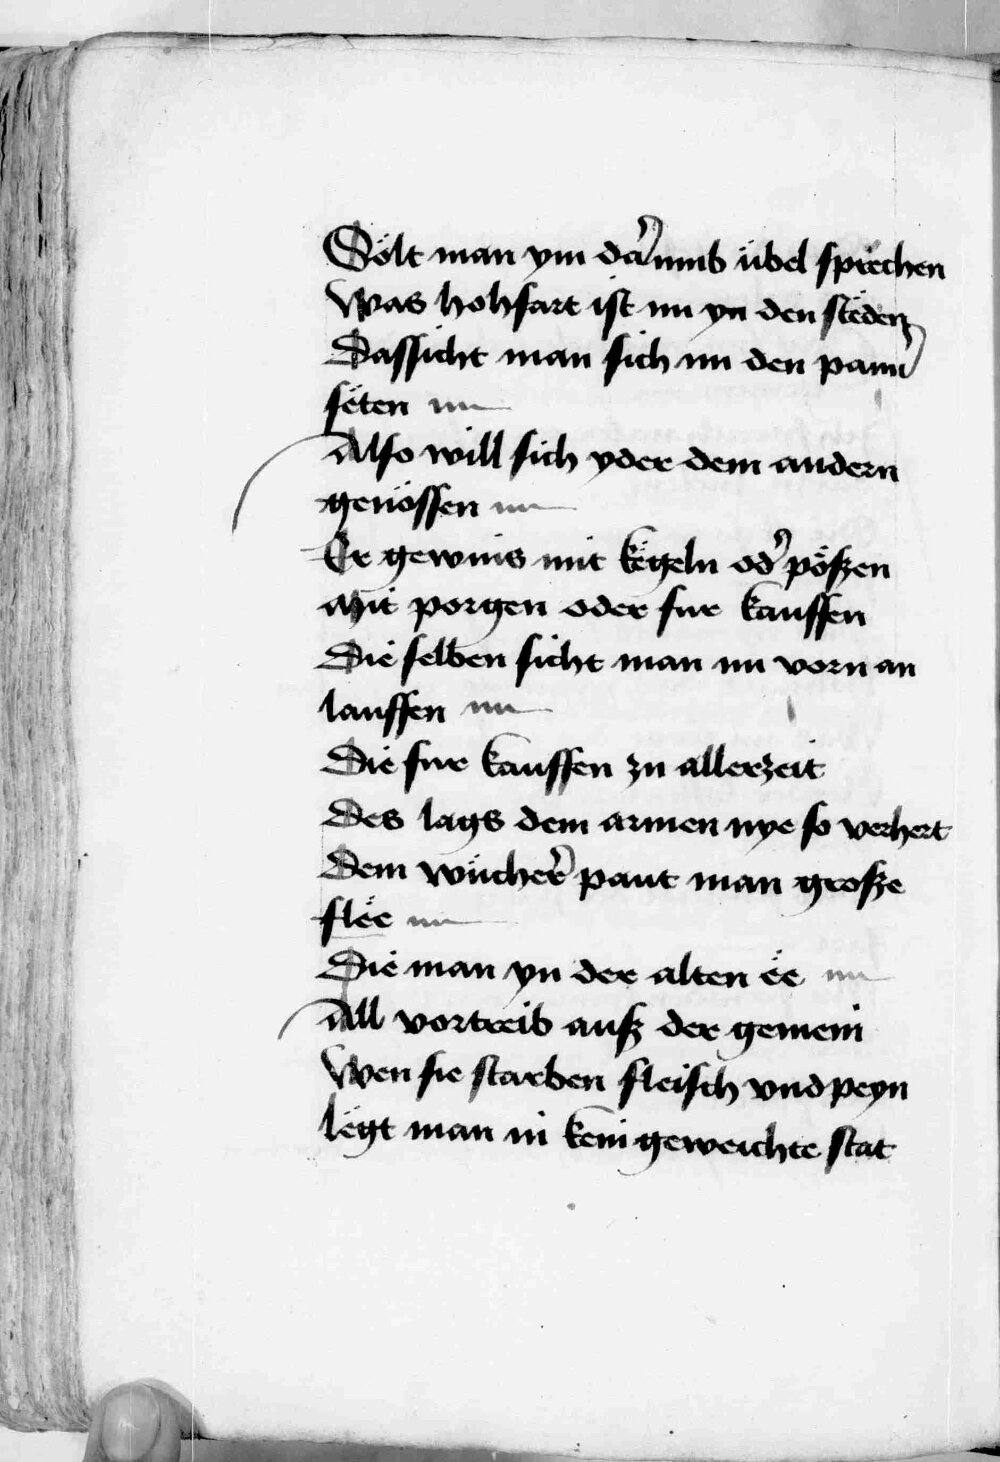 Sölt man ym darumb übel sprechen
Was hohfart ist nu yn den steden
Dassicht man sich nu den paurn
seten
Also will sich yder dem andern
genössen
Er gewins mit kegeln oder pößen
Mit porgen oder fur kauffen
Die selben sicht man nu vorn an
lauffen
Die fur kauffen zu allerzeit
Des lags dem armen nye so verhert
Dem wücherer paut man große
flee
Die man yn der alten ee
All vortreib auß der gemein
Wen sie starben fleisch vnd peyn
legt man in kein geweichte stat